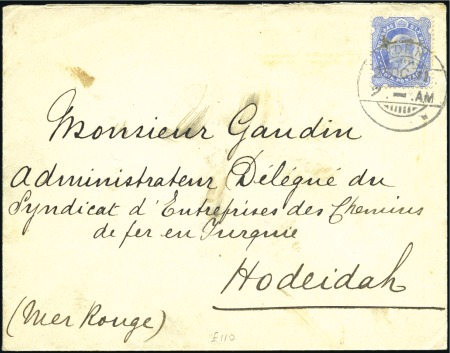 AM
Monsieur Gaudin
Administrateur Délégué du
Syndicat d'Entreprises des Chemins
de fer en Turquie
Hodeidah
(Mer Rouge)
£110